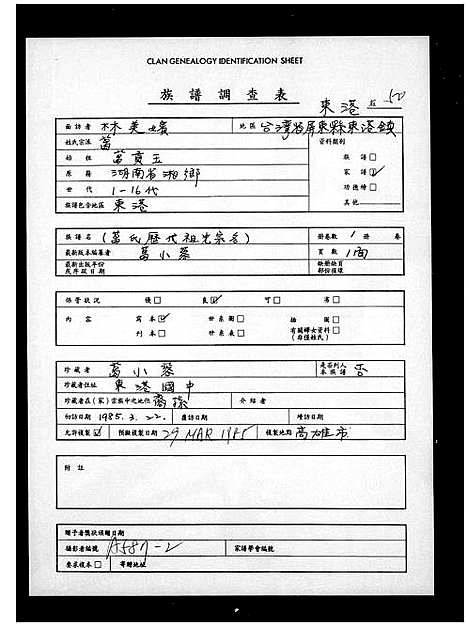 CLAN GENEALOGY IDENTIFICATION SHEET
族譜調查表
東港 50
面訪者 林美 地區 台灣省屏東縣東港鎮
姓氏宗派 葛 資料類別
始祖 葛貢玉 族譜□
原籍 湖南省湘鄉 家譜☑
世代 1-16代 功德榜□
族譜包含地區 東港 其他
族譜名 (葛氏歷代祖先宗名) 冊卷數 1 冊 卷
最新版本編纂者 葛小蓉 頁數 1面
最新出版年份或序跋日期 缺冊缺頁部份損壞
保管狀況 優□ 良☑ 可□ 劣□
內容 寫本☑ 世系圖□ 插圖□
刊本□ 世系表□ 有關婦女資料□(非僅姓氏)
珍藏者 葛小蓉 是否列入本族譜 否
珍藏者住址 東港國中
珍藏者在(家)宗族中之地位 裔孫 介紹者
初訪日期 1985.3.22. 複訪日期 增訪日期
允許複製☑ 預擬複製日期 29 MAR 1985 複製地點 高雄市
附註
贈予者獎狀頒贈日期
攝影者編號 A587-2 家譜學會編號
要求複本□ 寄贈地址